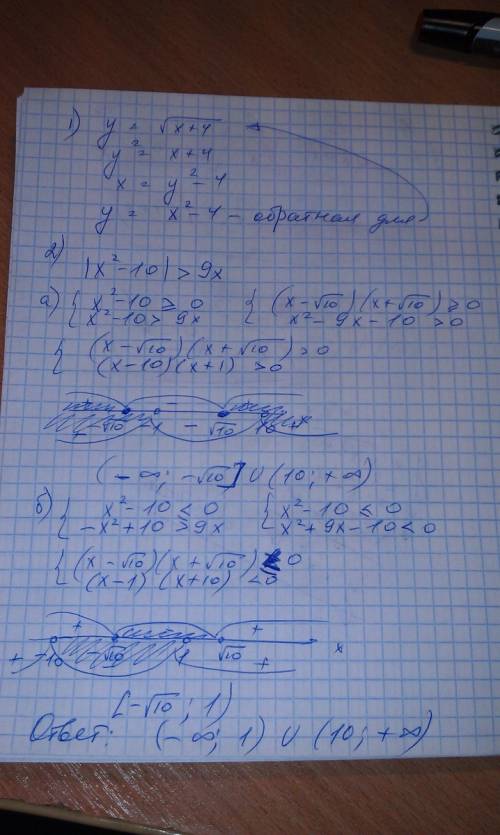 1) y = √x+4
y² = x+4
x = y²-4
y = x²-4 - обратная для
2) |x²-10| > 9x
а) { x²-10 ≥ 0 { (x-√10)(x+√10) ≥ 0
x²-10 > 9x x²-9x-10 > 0
{ (x-√10)(x+√10) ≥ 0
(x-10)(x+1) > 0
+ - +
+ -√10 -1 - √10 10 + x
(-∞; -√10] ∪ (10; +∞)
б) { x²-10 ≤ 0 { x²-10 ≤ 0
-x²+10 > 9x x²+9x-10 < 0
{ (x-√10)(x+√10) ≤ 0
(x-1)(x+10) < 0
+ - +
+ -10 -√10 1 √10 + x
[-√10; 1)
Ответ: (-∞; 1) ∪ (10; +∞)